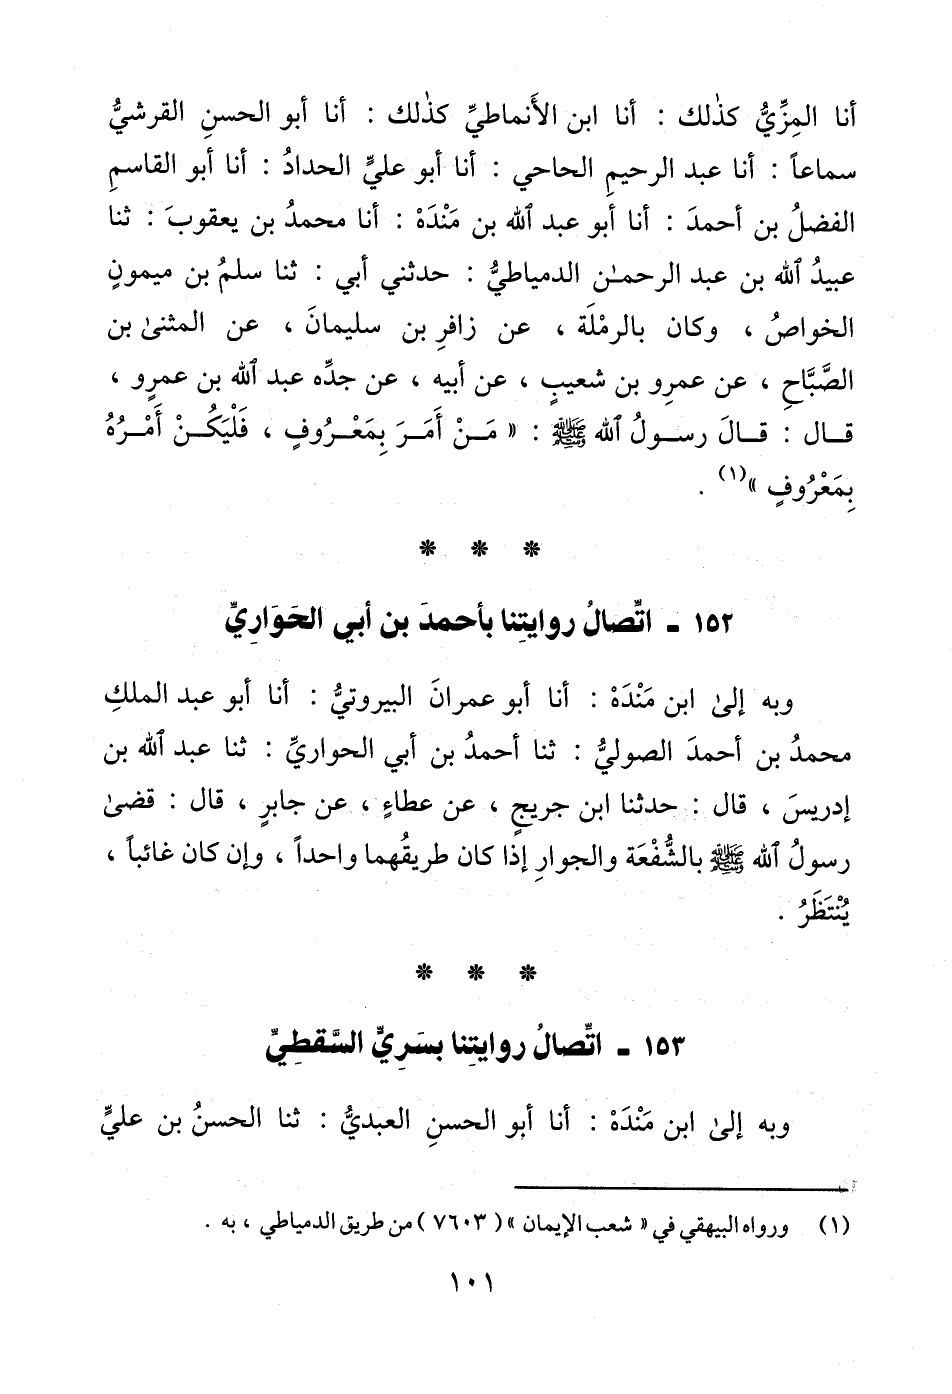 أنا المِزِّيُّ كذٰلك : أنا ابن الأَنماطيِّ كذٰلك : أنا أبو الحسنِ القرشيُّ
سماعاً : أنا عبد الرحيمِ الحاجي : أنا أبو عليٍّ الحدادُ : أنا أبو القاسمِ
الفضلُ بن أحمدَ : أنا أبو عبد ٱلله بن مَنْدَهْ : أنا محمدُ بن يعقوبَ : ثنا
عبيدُ ٱلله بن عبد الرحمـٰن الدمياطيُّ : حدثني أبي : ثنا سلمُ بن ميمونٍ
الخواصُ ، وكان بالرمْلَة ، عن زافرِ بن سليمانَ ، عن المثنىٰ بن
الصَّبَّاحِ ، عن عمرِو بن شعيبٍ ، عن أبيه ، عن جدِّه عبد ٱلله بن عمرٍو ،
قـال : قـالَ رسـولُ ٱلله ﷺ : « مَـنْ أَمَـرَ بِمَعْـرُوفٍ ، فَلْيَكُـنْ أَمْـرُهُ
بِمَعْرُوفٍ »(١) .
* * *
١٥٢ ـ اتِّصالُ روايتِنا بأحمدَ بن أبي الحَوَارِيِّ
وبه إلىٰ ابن مَنْدَهْ : أنا أبو عمرانَ البيروتيُّ : أنا أبو عبد الملكِ
محمدُ بن أحمدَ الصوليُّ : ثنا أحمدُ بن أبي الحواريِّ : ثنا عبد ٱلله بن
إدريسَ ، قال : حدثنا ابن جريجٍ ، عن عطاءٍ ، عن جابرٍ ، قال : قضىٰ
رسولُ ٱلله ﷺ بالشُّفْعَة والجوارِ إذا كان طريقُهما واحداً ، وإن كان غائباً ،
يُنْتَظَرُ .
* * *
١٥٣ ـ اتِّصالُ روايتِنا بسَرِيٍّ السَّقطِيِّ
وبه إلىٰ ابن مَنْدَهْ : أنا أبو الحسنِ العبديُّ : ثنا الحسنُ بن عليٍّ
(١) ورواه البيهقي في « شعب الإيمان » ( ٧٦٠٣ ) من طريق الدمياطي ، به .
١٠١